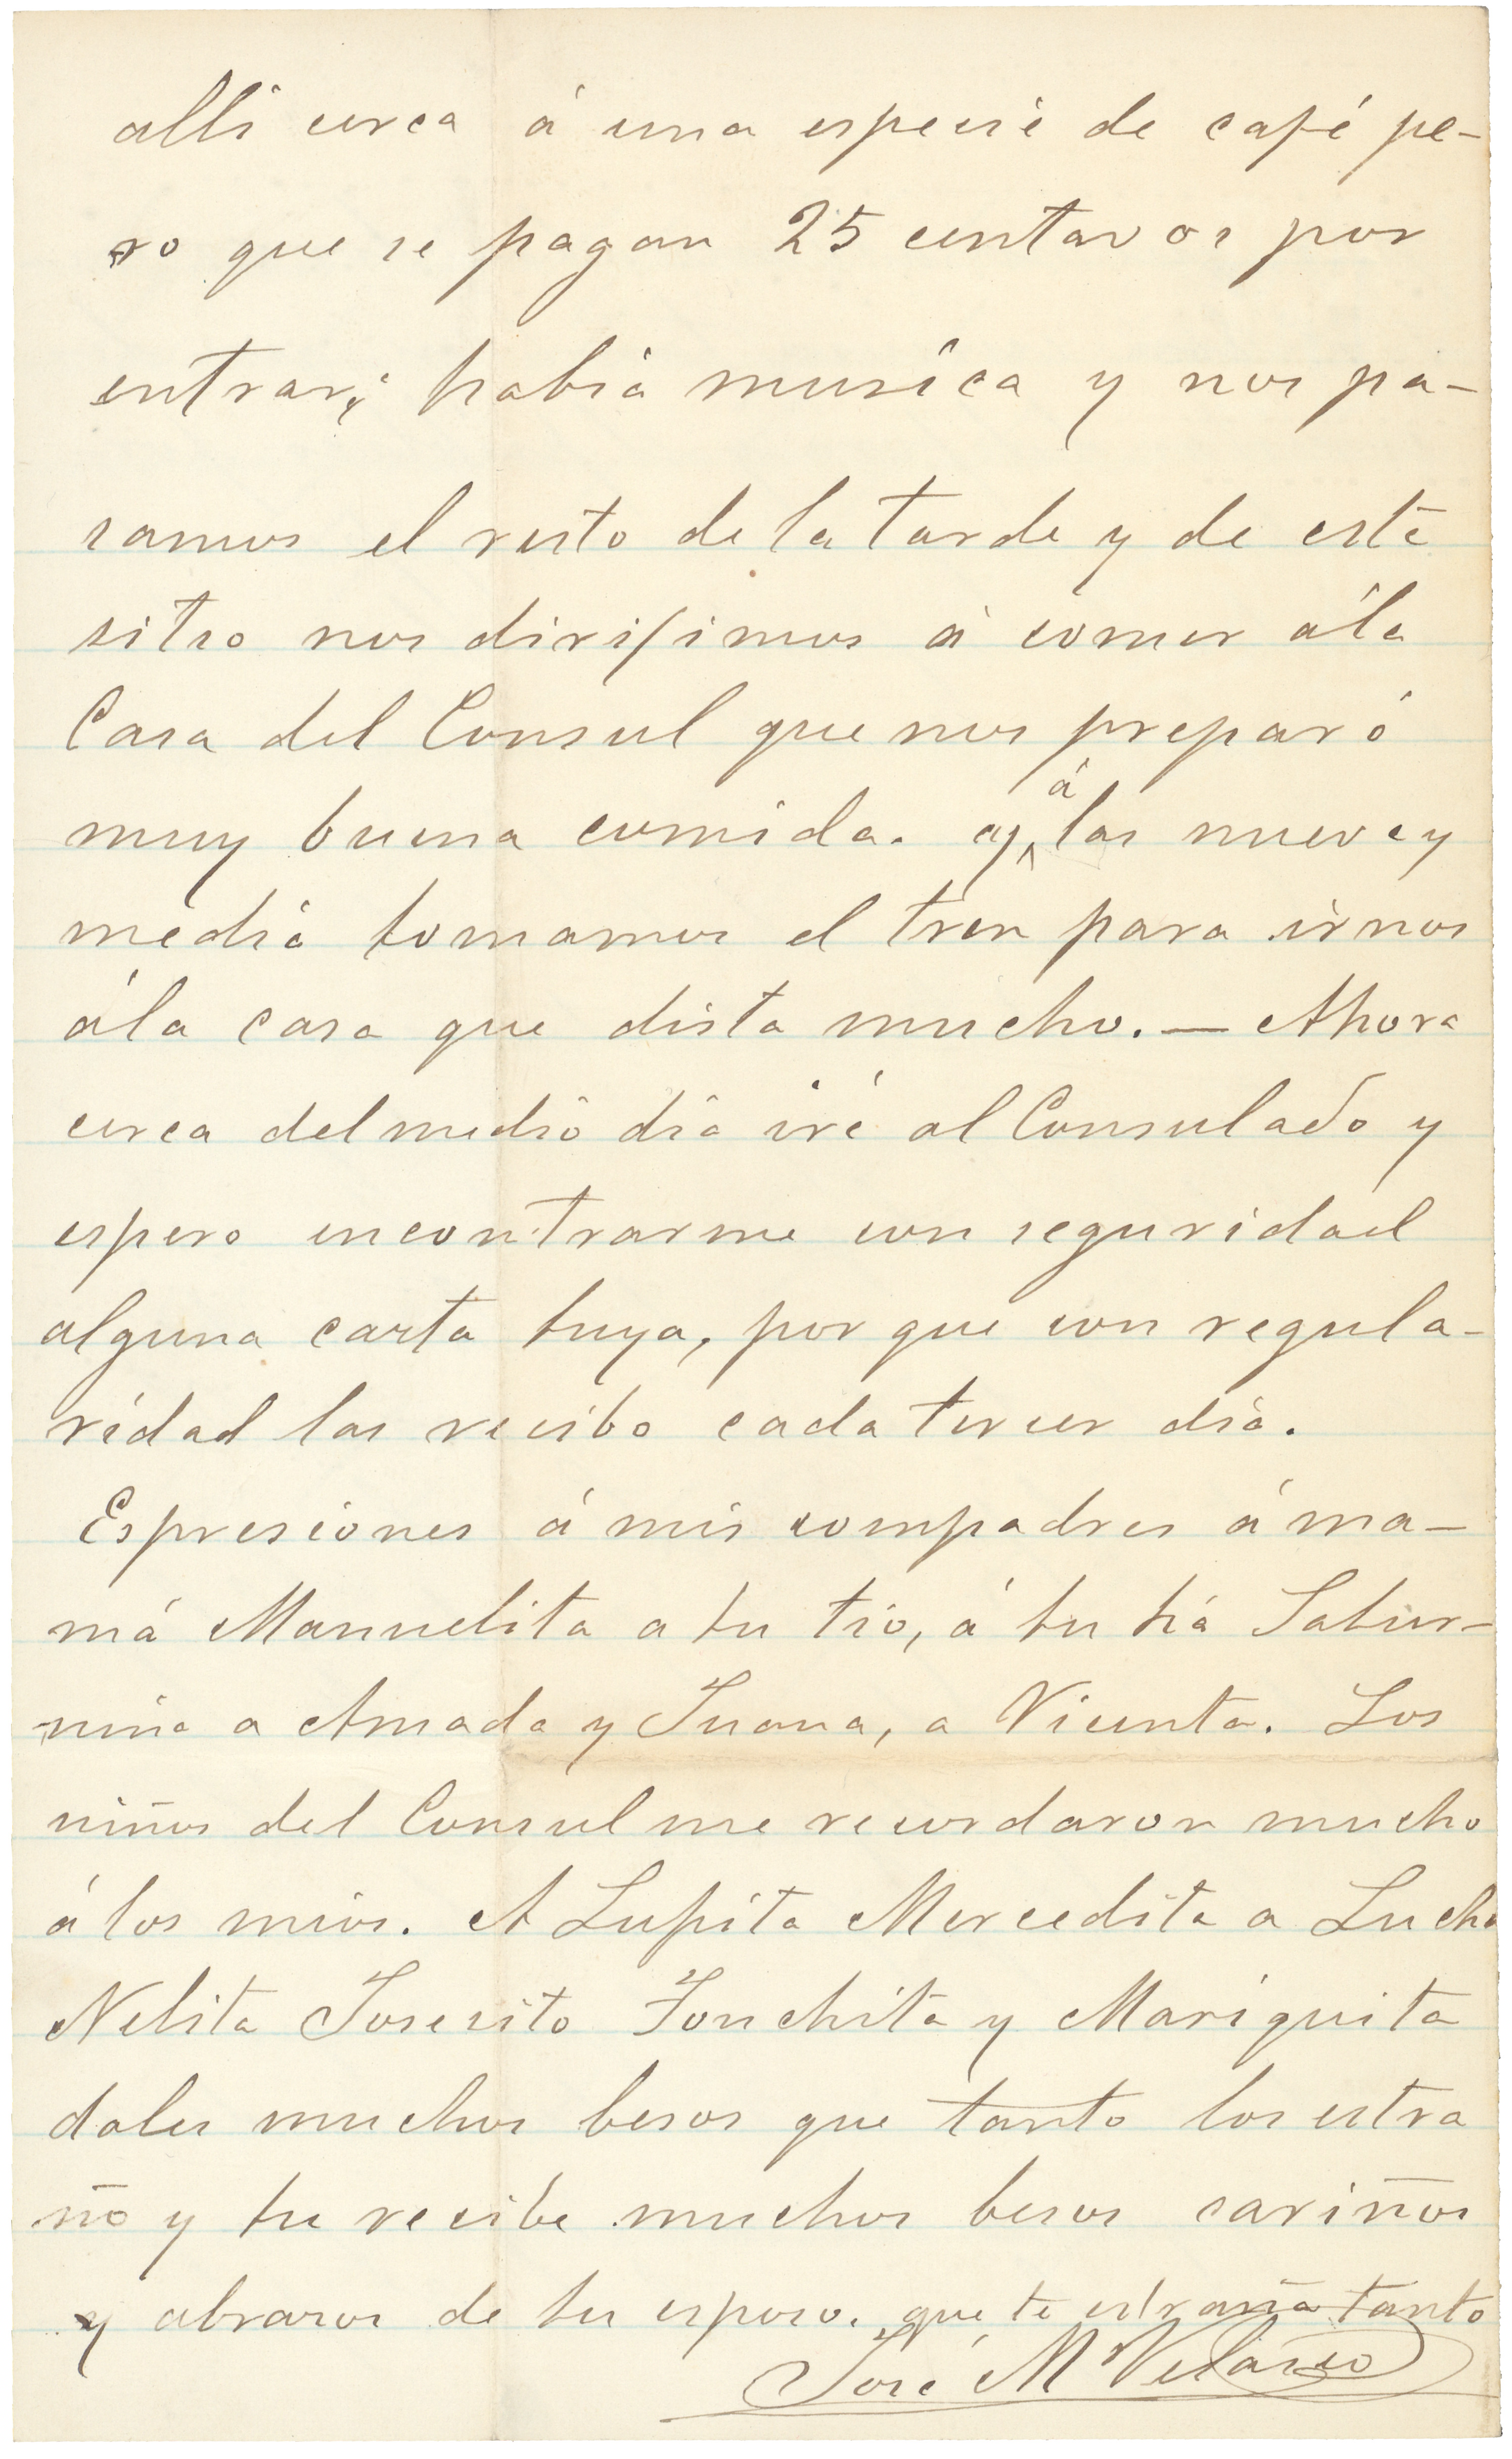 allí cerca á una especie de café pe-
ro que se pagan 25 centavos por
entrar; había musica y nos pa-
samos el resto de la tarde y de este
sitio nos dirijimos á comer á la
Casa del Consul que nos preparó
muy buena comida. y á las nueve y
media tomamos el tren para irnos
á la casa que dista mucho. — Ahora
cerca del medio dia iré al Consulado y
espero encontrarme con seguridad
alguna carta tuya, por que con regula-
ridad las recibo cada tercer dia.
Espresiones á mis compadres á ma-
má Manuelita a tu tio, á tu tia Satur-
nina a Amada y Juana, a Vicenta. Los
niños del Consul me recordaron mucho
á los mios. A Lupita Mercedita a Lucha
Nelita Josesito Fonchita y Mariquita
dales muchos besos que tanto los estra
ño y tu recibe muchos besos cariños
y abrazos de tu esposo. que te estraña tanto
José M Velasco